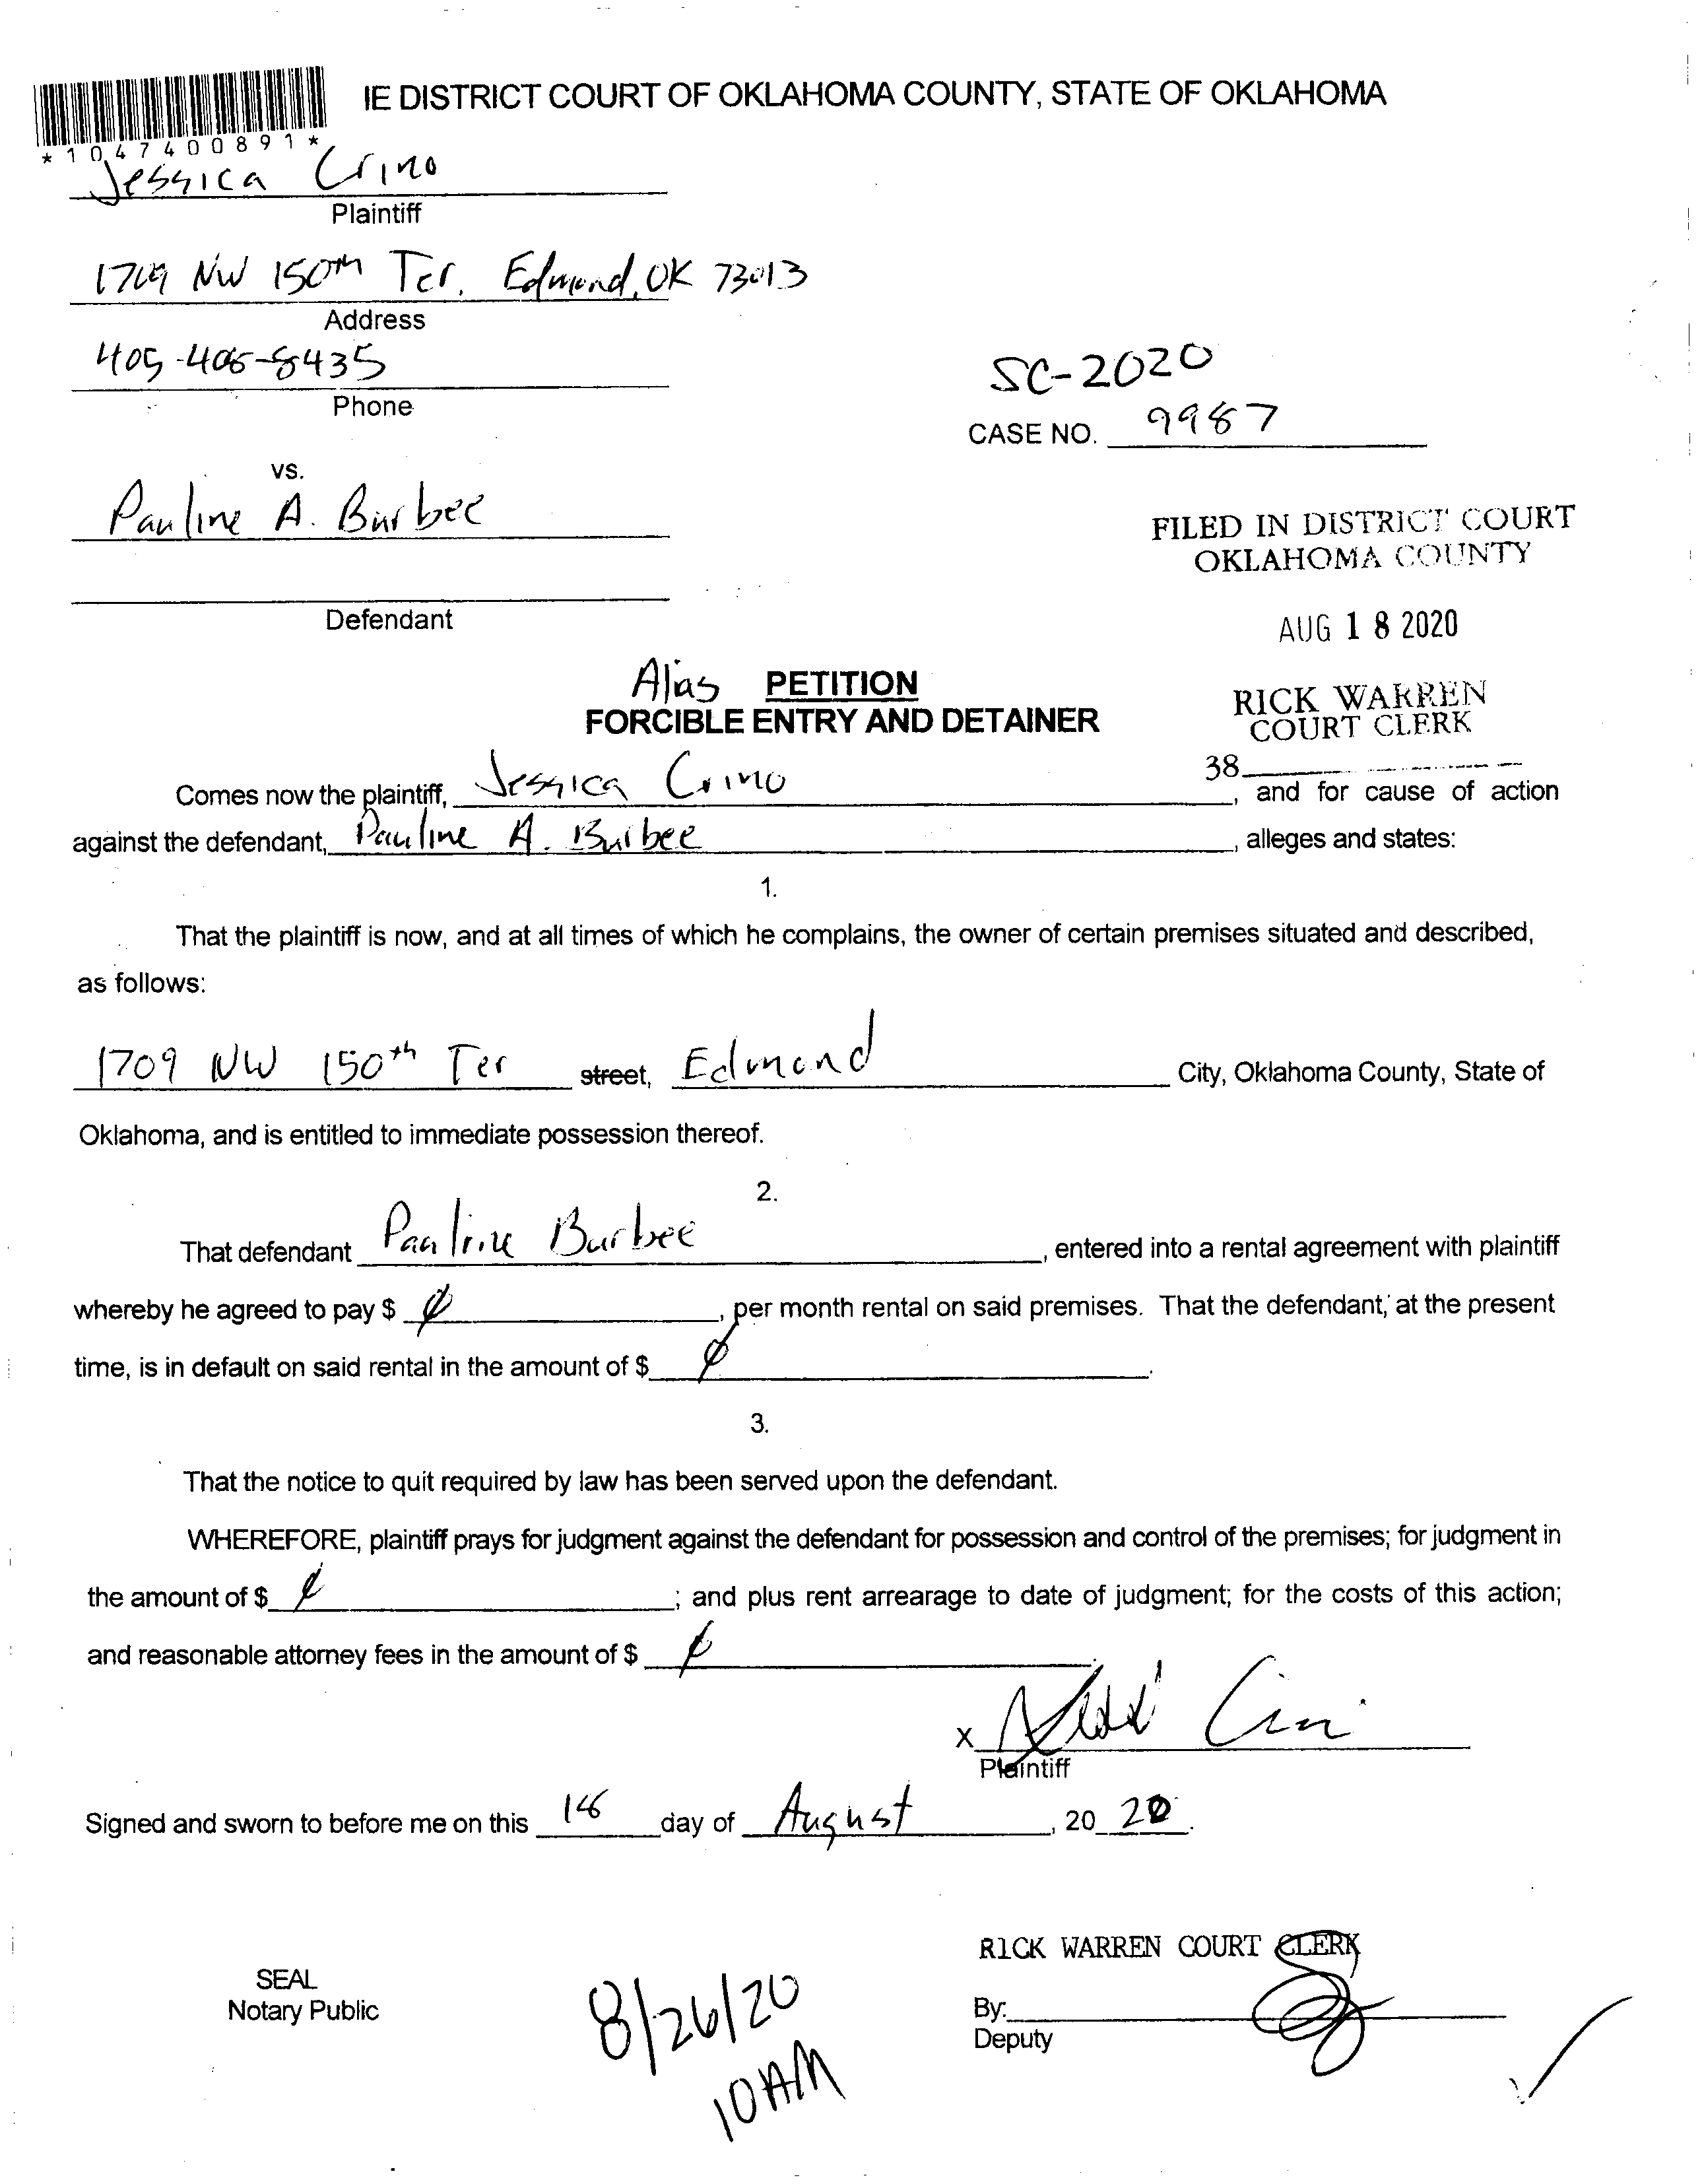 IE DISTRICT COURT OF OKLAHOMA COUNTY, STATE OF OKLAHOMA
*1047400891*
Jessica Crino
Plaintiff
1709 NW 150th Ter. Edmond, OK 73013
Address
405-408-8435
Phone
SC-2020
CASE NO. 9987
vs.
Pauline A. Burbee
FILED IN DISTRICT COURT
OKLAHOMA COUNTY
Defendant
AUG 18 2020
Alias PETITION
FORCIBLE ENTRY AND DETAINER
RICK WARREN
COURT CLERK
38
Comes now the plaintiff, Jessica Crino, and for cause of action
against the defendant, Pauline A. Burbee, alleges and states:
1.
That the plaintiff is now, and at all times of which he complains, the owner of certain premises situated and described,
as follows:
1709 NW 150th Ter street, Edmond City, Oklahoma County, State of
Oklahoma, and is entitled to immediate possession thereof.
2.
That defendant Pauline Burbee, entered into a rental agreement with plaintiff
whereby he agreed to pay $ 0, per month rental on said premises. That the defendant, at the present
time, is in default on said rental in the amount of $ 0.
3.
That the notice to quit required by law has been served upon the defendant.
WHEREFORE, plaintiff prays for judgment against the defendant for possession and control of the premises; for judgment in
the amount of $ 0; and plus rent arrearage to date of judgment; for the costs of this action;
and reasonable attorney fees in the amount of $ 0.
X
Plaintiff
Signed and sworn to before me on this 18 day of August, 20 20.
RICK WARREN COURT CLERK
SEAL
Notary Public
8/26/20
10 AM
By:
Deputy